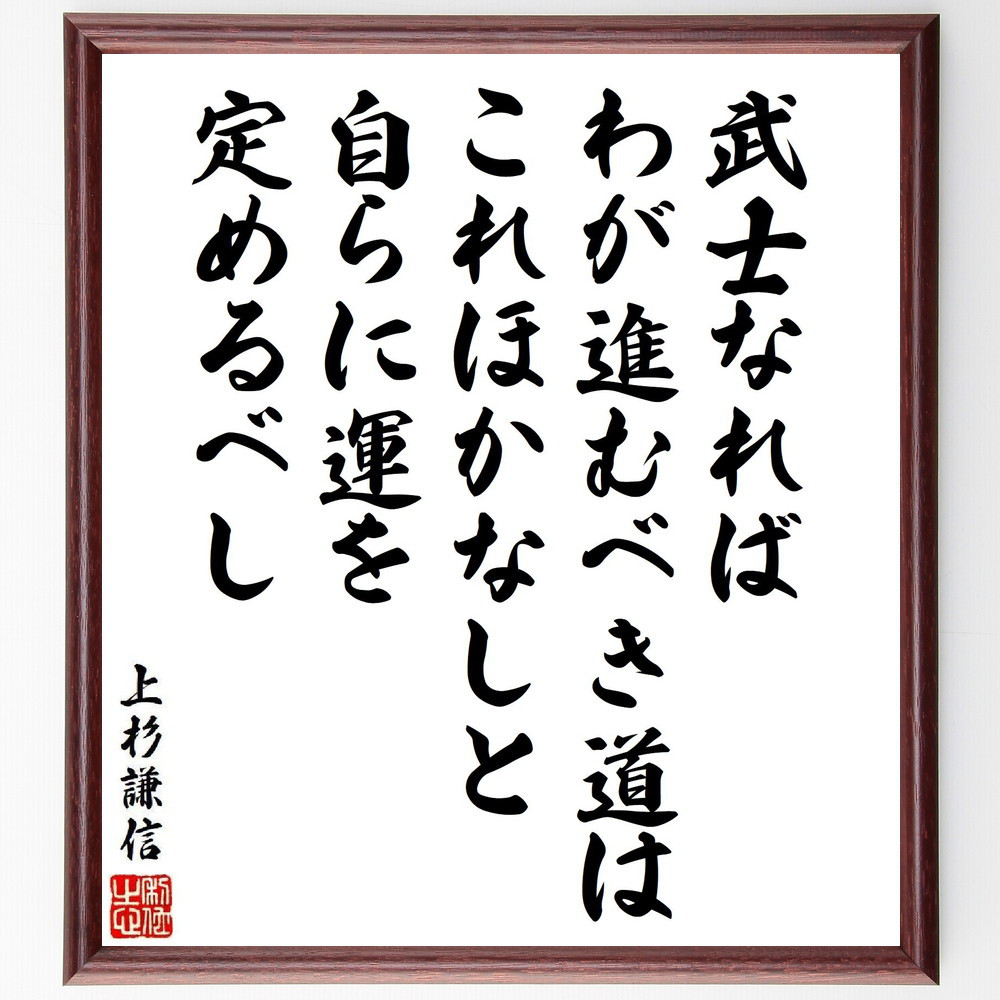 武士なれば
わが進むべき道は
これほかなしと
自らに運を
定めるべし
上杉謙信